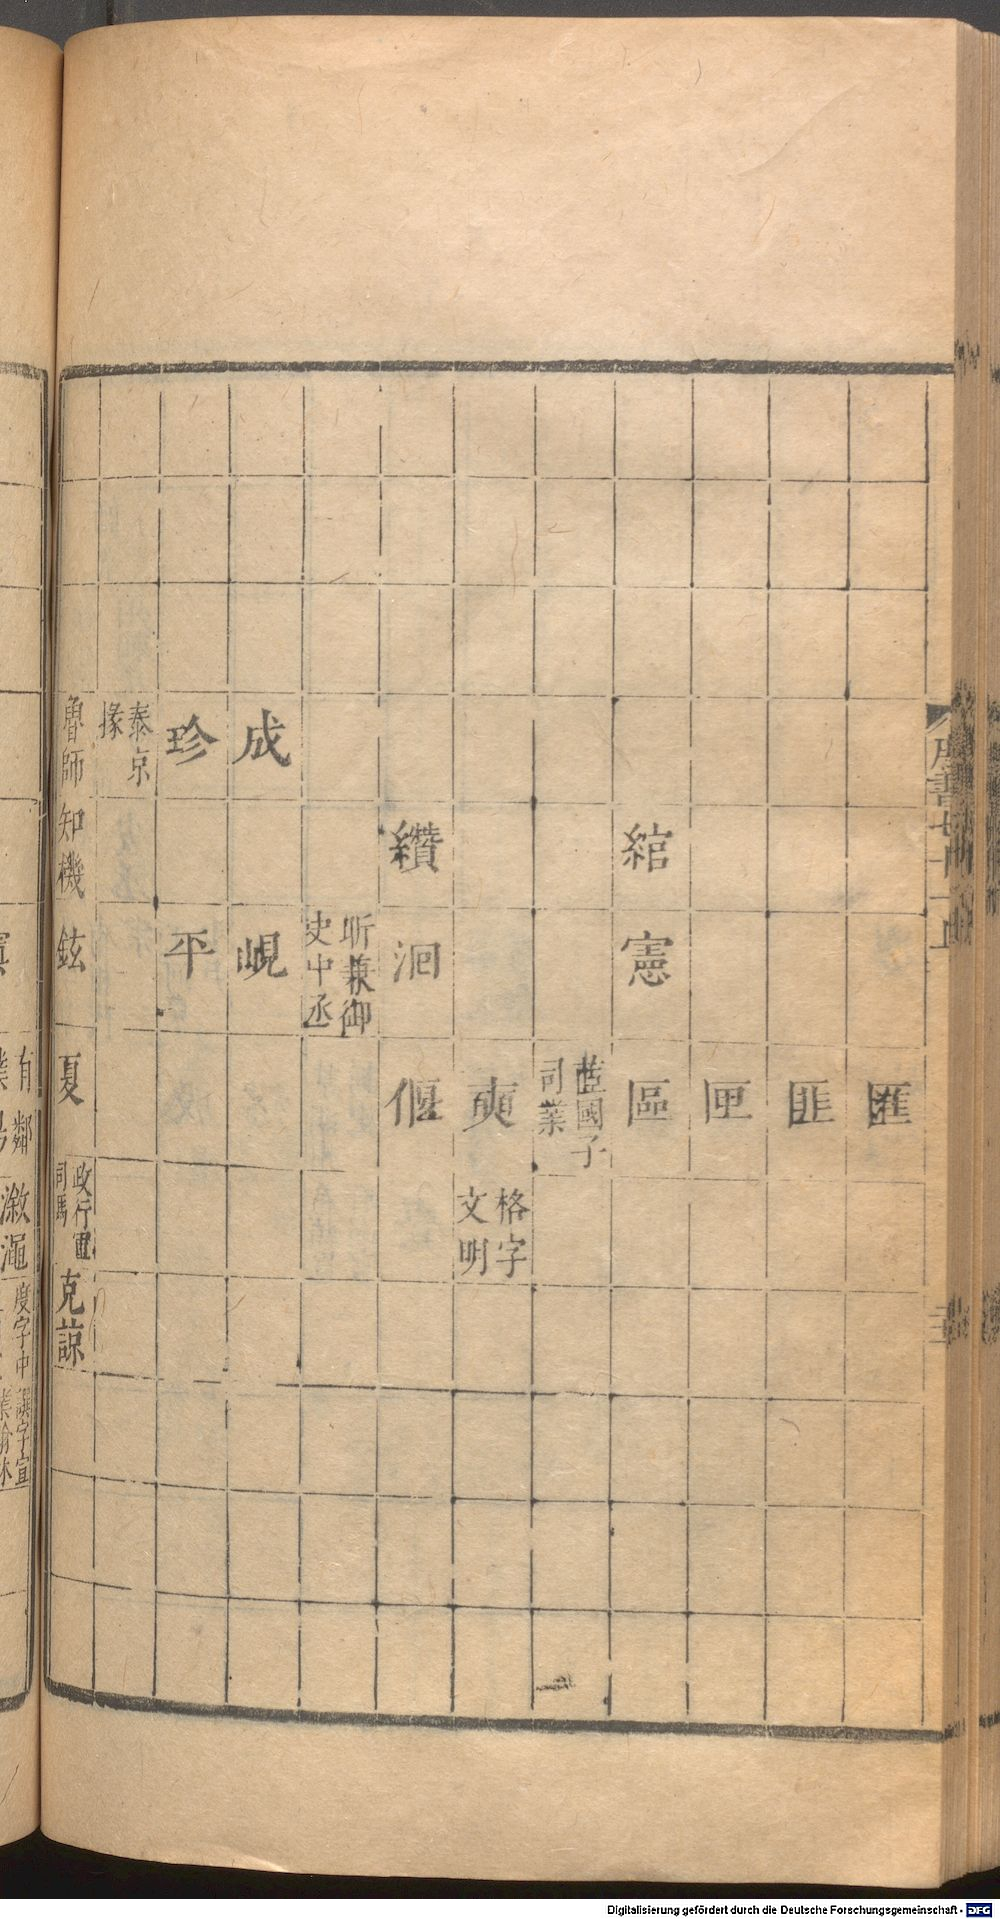 匯
匪
匣
綰
憲
區
藍國子
司業
奭
格字
文明
纘
泂
偃
昕兼御
史中丞
成
峴
珍
平
泰京
掾
魯師
知機
鉉
夏
政行軍
司馬
克諒
Digitalisierung gefördert durch die Deutsche Forschungsgemeinschaft - DFG